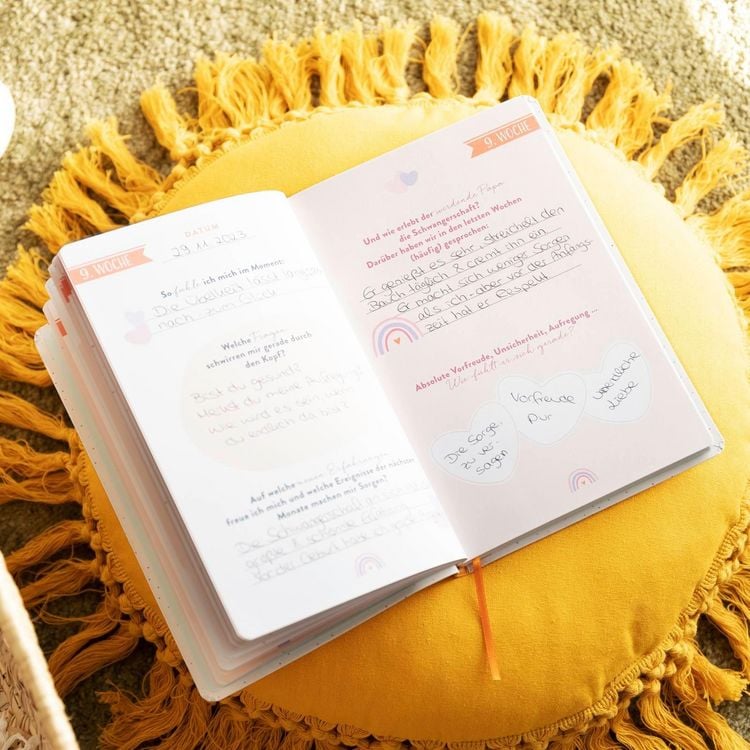 DATUM
29.11.2023
9. WOCHE
So fühle ich mich im Moment:
Die Übelkeit lässt langsam
nach - zum Glück
Welche Fragen
schwirren mir gerade durch
den Kopf?
Bist du gesund?
Merkst du meine Aufregung?
Wie wird es sein wenn
du endlich da bist?
Auf welche neuen Erfahrungen
freue ich mich und welche Ereignisse der nächsten
Monate machen mir Sorgen?
Die Schwangerschaft an sich ist
große & schöne
Vor der Geburt habe ich
9. WOCHE
Und wie erlebt der werdende Papa
die Schwangerschaft?
Darüber haben wir in den letzten Wochen
(häufig) gesprochen:
Er genießt es sehr, streichelt den
Bauch täglich & cremt ihn ein
Er macht sich weniger Sorgen
als ich - aber vor der Anfangs-
zeit hat er Respekt
Absolute Vorfreude, Unsicherheit, Aufregung ...
Wie fühlt er sich gerade?
Die Sorge,
zu ver-
sagen
Vorfreude
Pur
unendliche
Liebe